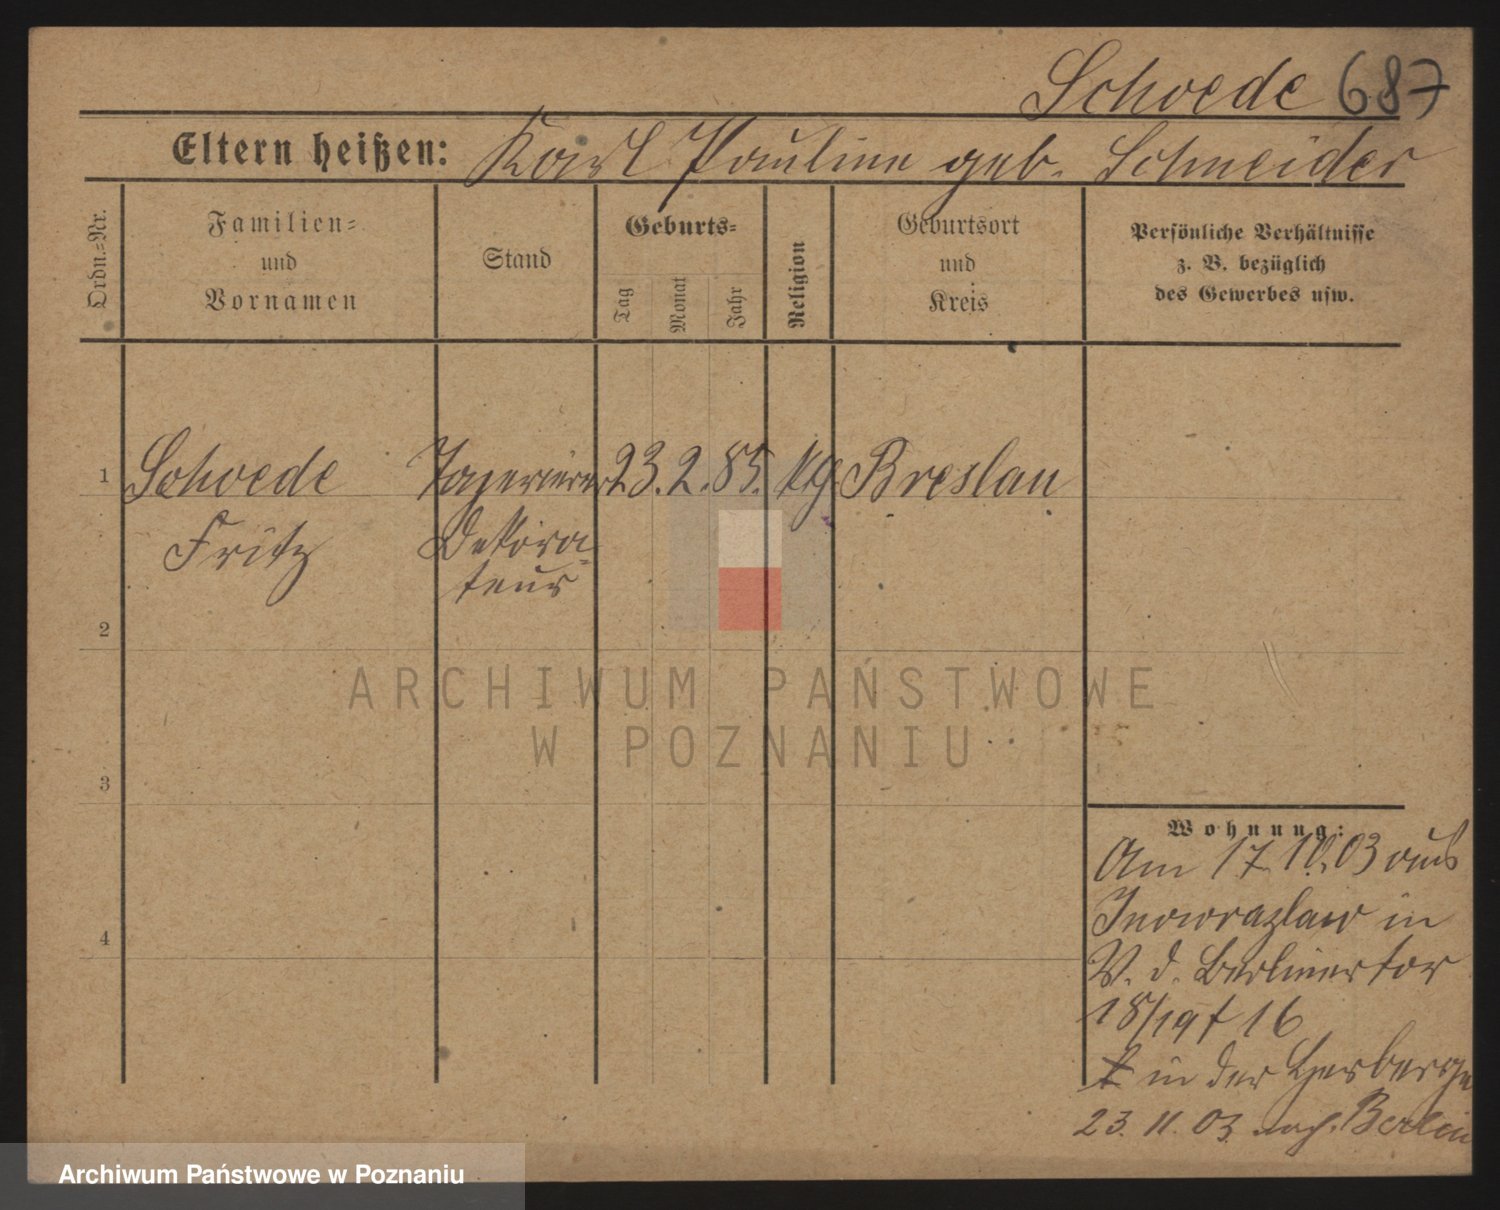 Schwede 687
Eltern heißen: Karl Pauline geb. Schneider
Ordn.-Nr.
Familien-
und
Vornamen
Stand
Geburts-
Tag
Monat
Jahr
Religion
Geburtsort
und
Kreis
Persönliche Verhältnisse
z. B. bezüglich
des Gewerbes usw.
1 Schwede Tapezierer 23. 2. 85. ktg Breslau
Fritz Dekora-
teur
2
ARCHIWUM PAŃSTWOWE
W POZNANIU
3
Wohnung:
Am 17. 10. 03 aus
Inowrazlaw in
V. d. Berlinertor
4
18/19 f 16
in der Herberge
23. 11. 03. nach Berlin
Archiwum Państwowe w Poznaniu